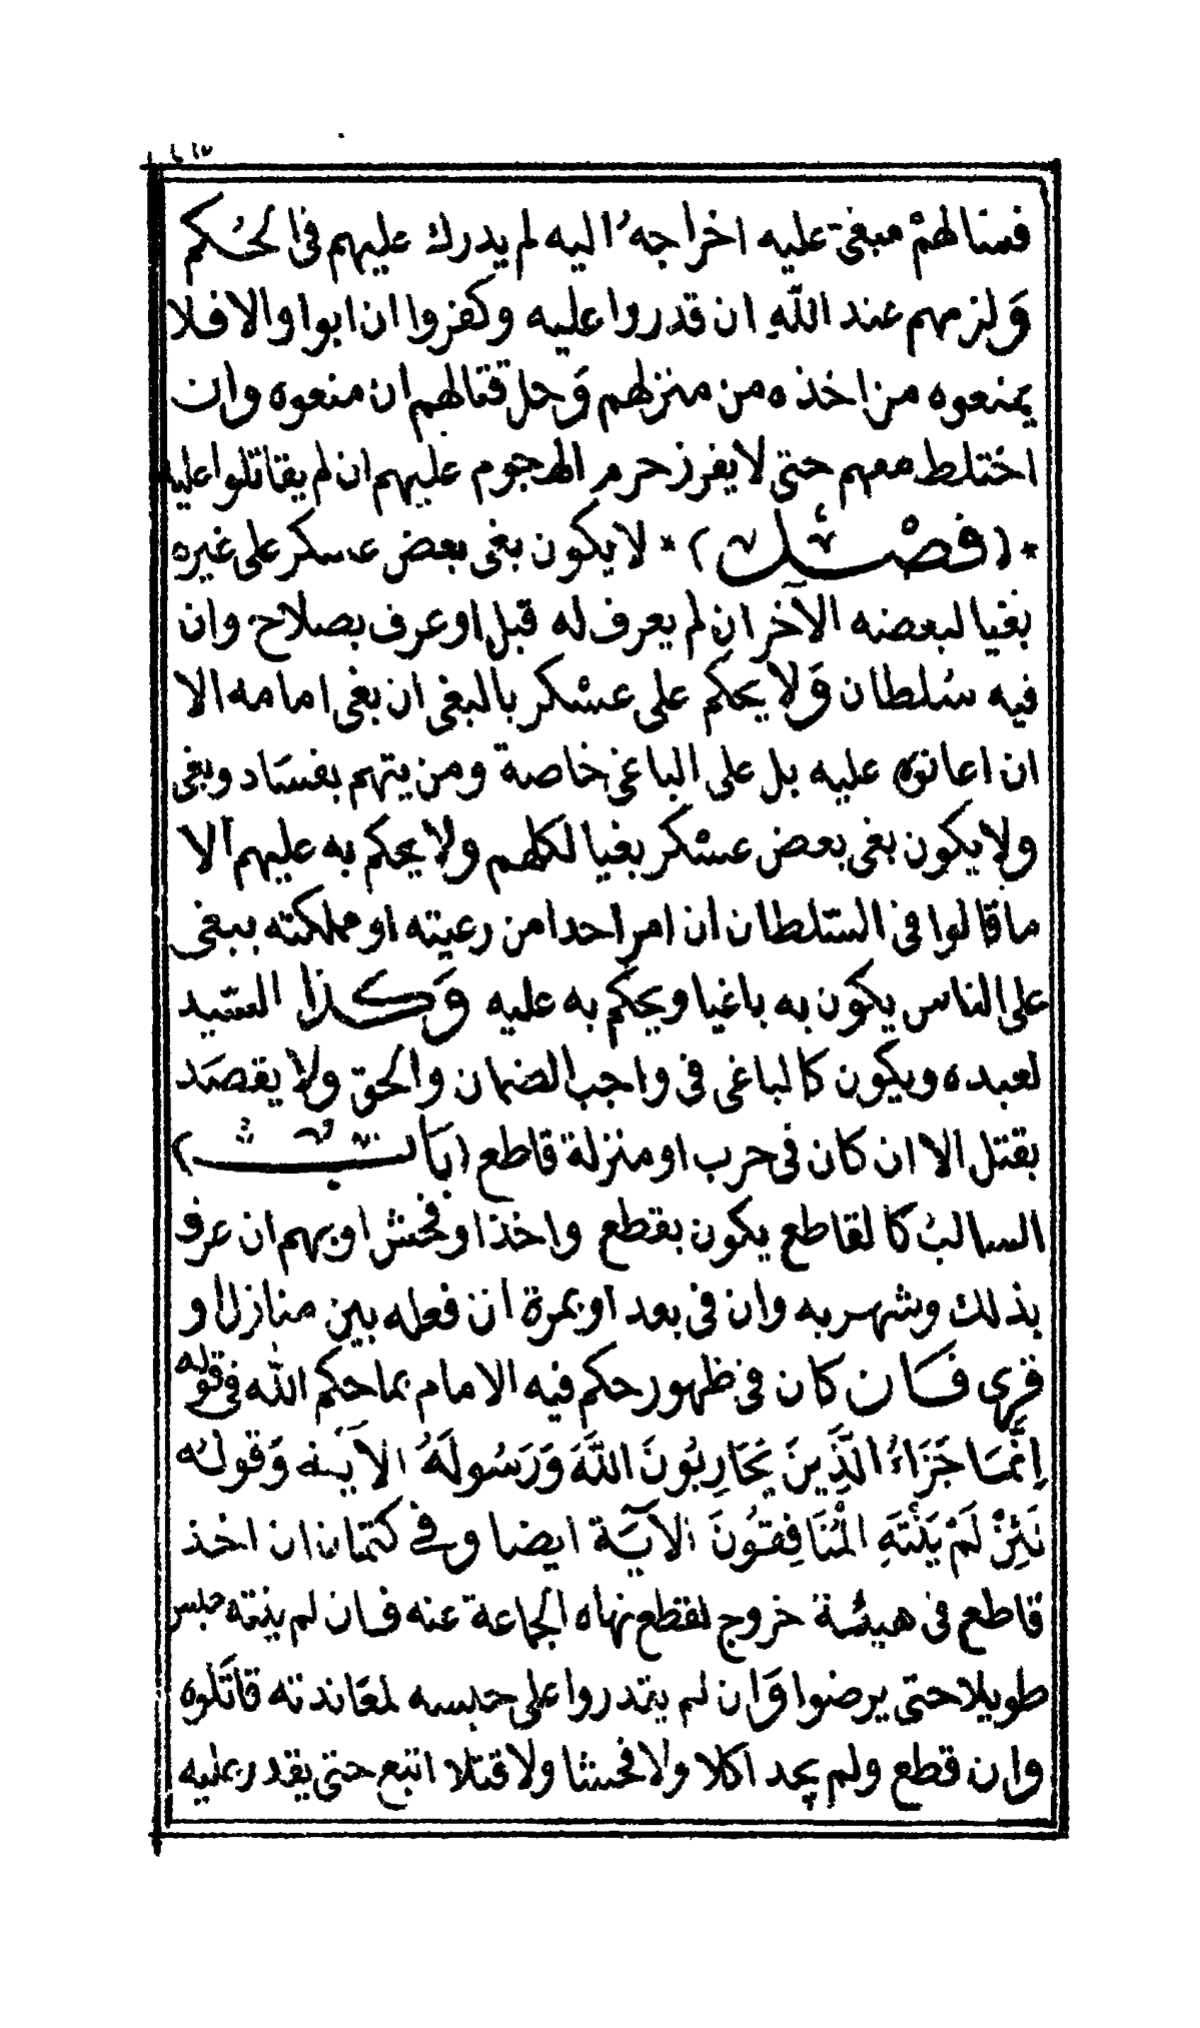 فسالهم مبغى عليه اخراجه اليه لم يدرك عليهم فى الحكم
ولزمهم عند الله ان قدروا عليه وكفروا ان ابوا والا فلا
يمنعوه من اخذه من منزلهم وحل قتالهم ان منعوه وان
اختلط معهم حتى لا يفرز حرم الهجوم عليهم ان لم يقاتلوا عليه
*(فصل)* لا يكون بغى بعض عسكر على غيره
بغيا لبعضه الآخر ان لم يعرف له قبل او عرف بصلاح وان
فيه سلطان ولا يحكم على عسكر بالبغى ان بغى امامه الا
ان اعانوه عليه بل على الباغى خاصة ومن يتهم بفساد وبغى
ولا يكون بغى بعض عسكر بغيا لكلهم ولا يحكم به عليهم الا
ما قالوا فى السلطان ان امر احدا من رعيته او مملكته ببغى
على الناس يكون به باغيا ويحكم به عليه وكذا السيد
لعبده ويكون كالباغى فى واجب الضمان والحق ولا يقصد
بقتل الا ان كان فى حرب او منزلة قاطع (باب)
السالب كالقاطع يكون بقطع واخذ او فحش او بهم ان عرف
بذلك وشهر به وان فى بعد او بمرة ان فعله بين منازل او
قرى فان كان فى ظهور حكم فيه الامام بما حكم الله فى قوله
إِنَّمَا جَزَاءُ الَّذِينَ يُحَارِبُونَ اللَّهَ وَرَسُولَهُ الآية وقوله
لَئِنْ لَمْ يَنْتَهِ الْمُنَافِقُونَ الآية ايضا وفى كتمان ان اخذ
قاطع فى هيئة خروج لقطع نهاه الجماعة عنه فان لم ينته حبس
طويلا حتى يرضوا وان لم يقدروا على حبسه لمعاندته قاتلوه
وان قطع ولم يجد اكلا ولا فحشا ولا قتلا اتبع حتى يقدر عليه